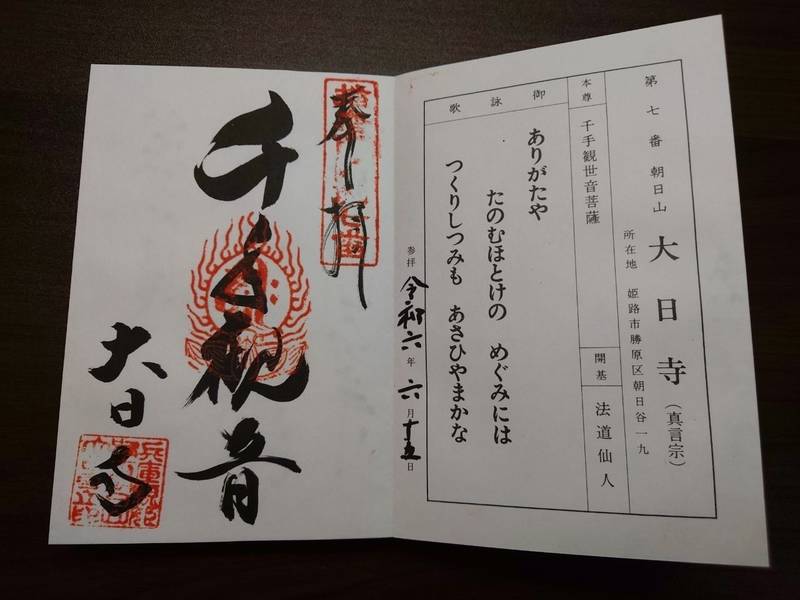 第七番 朝日山 大日寺(真言宗)
所在地 姫路市勝原区朝日谷一九
本尊 千手観世音菩薩
開基 法道仙人
御詠歌
ありがたや
たのむほとけの めぐみには
つくりしつみも あさひやまかな
参拝 令和六年 六月十五日
奉拝
千手観音
大日寺